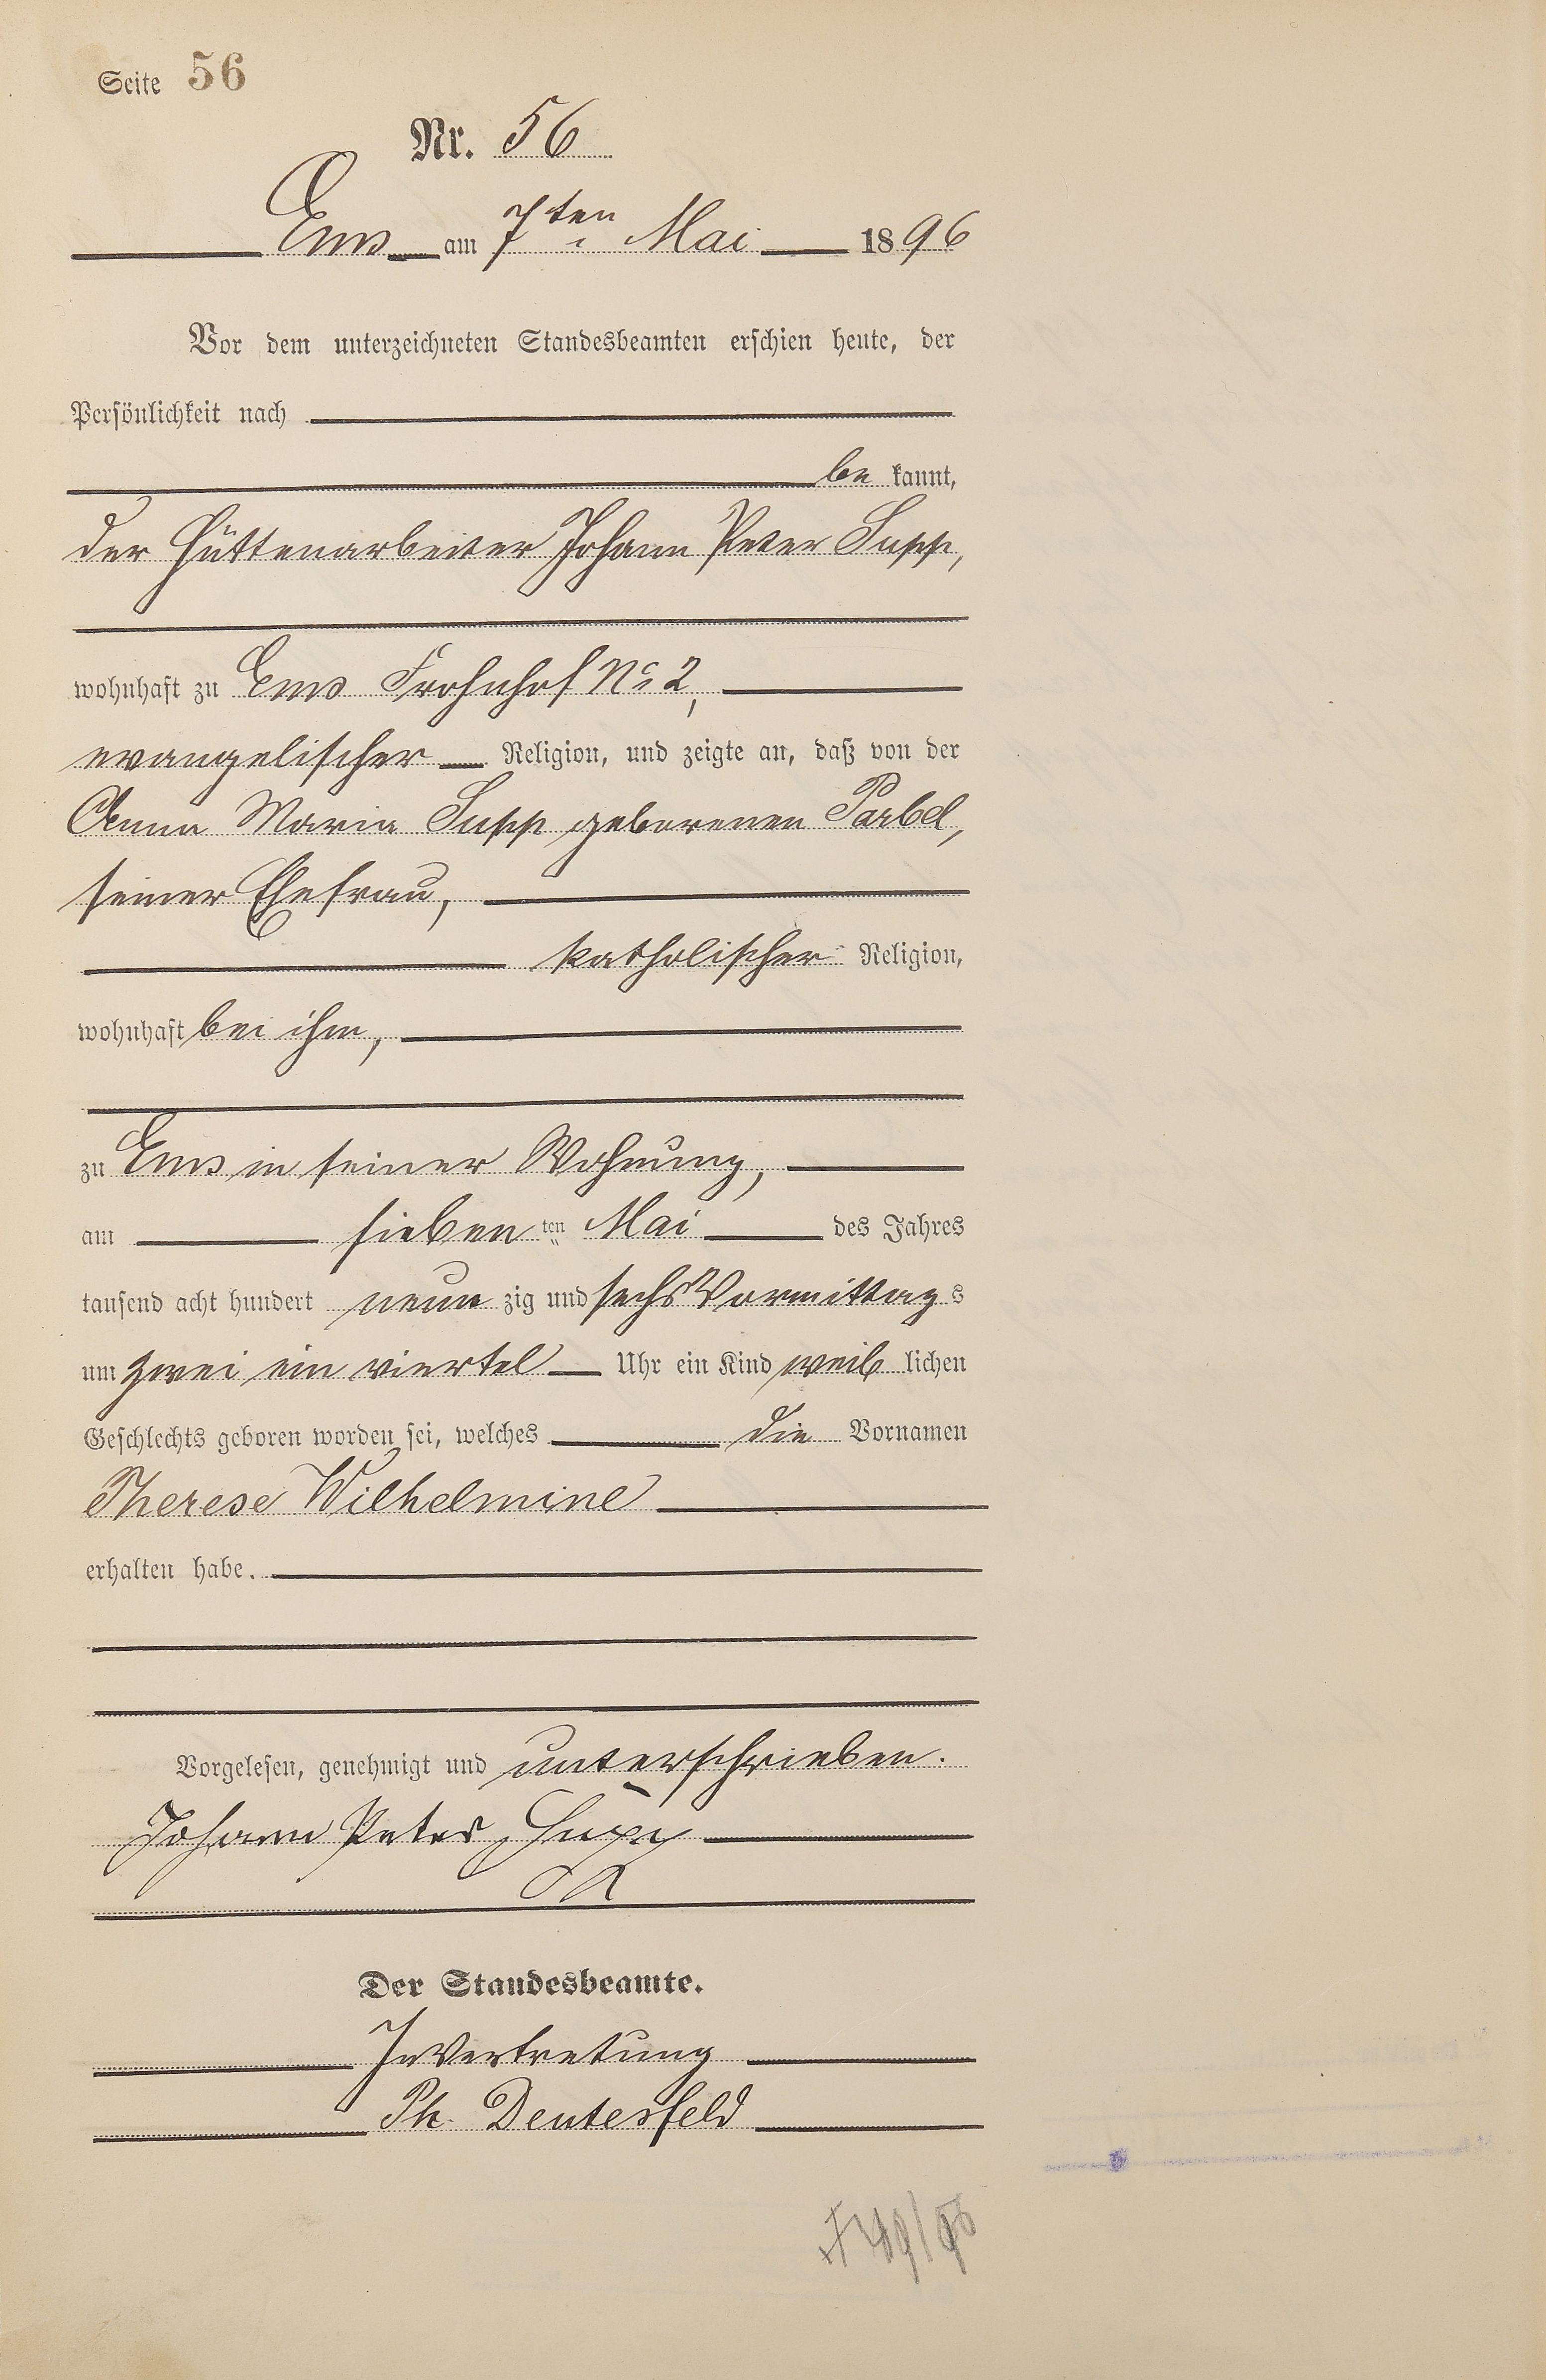 Seite 56
Nr. 56
Ems am 7ten Mai 1896
Vor dem unterzeichneten Standesbeamten erschien heute, der
Persönlichkeit nach
be kannt,
der Hüttenarbeiter Johann Peter Supp,
wohnhaft zu Ems Frohnhof No 2,
evangelischer Religion, und zeigte an, daß von der
Anna Maria Supp geborenen Parbel,
seiner Ehefrau,
katholischer Religion,
wohnhaft bei ihm,
zu Ems in seiner Wohnung,
am sieben ten Mai des Jahres
tausend acht hundert neun zig und sechs Vormittag s
um zwei ein viertel Uhr ein Kind weib lichen
Geschlechts geboren worden sei, welches die Vornamen
Therese Wilhelmine
erhalten habe.
Vorgelesen, genehmigt und unterschrieben.
Johann Peter Supp
Der Standesbeamte.
In Vertretung
Ph. Deutesfeld